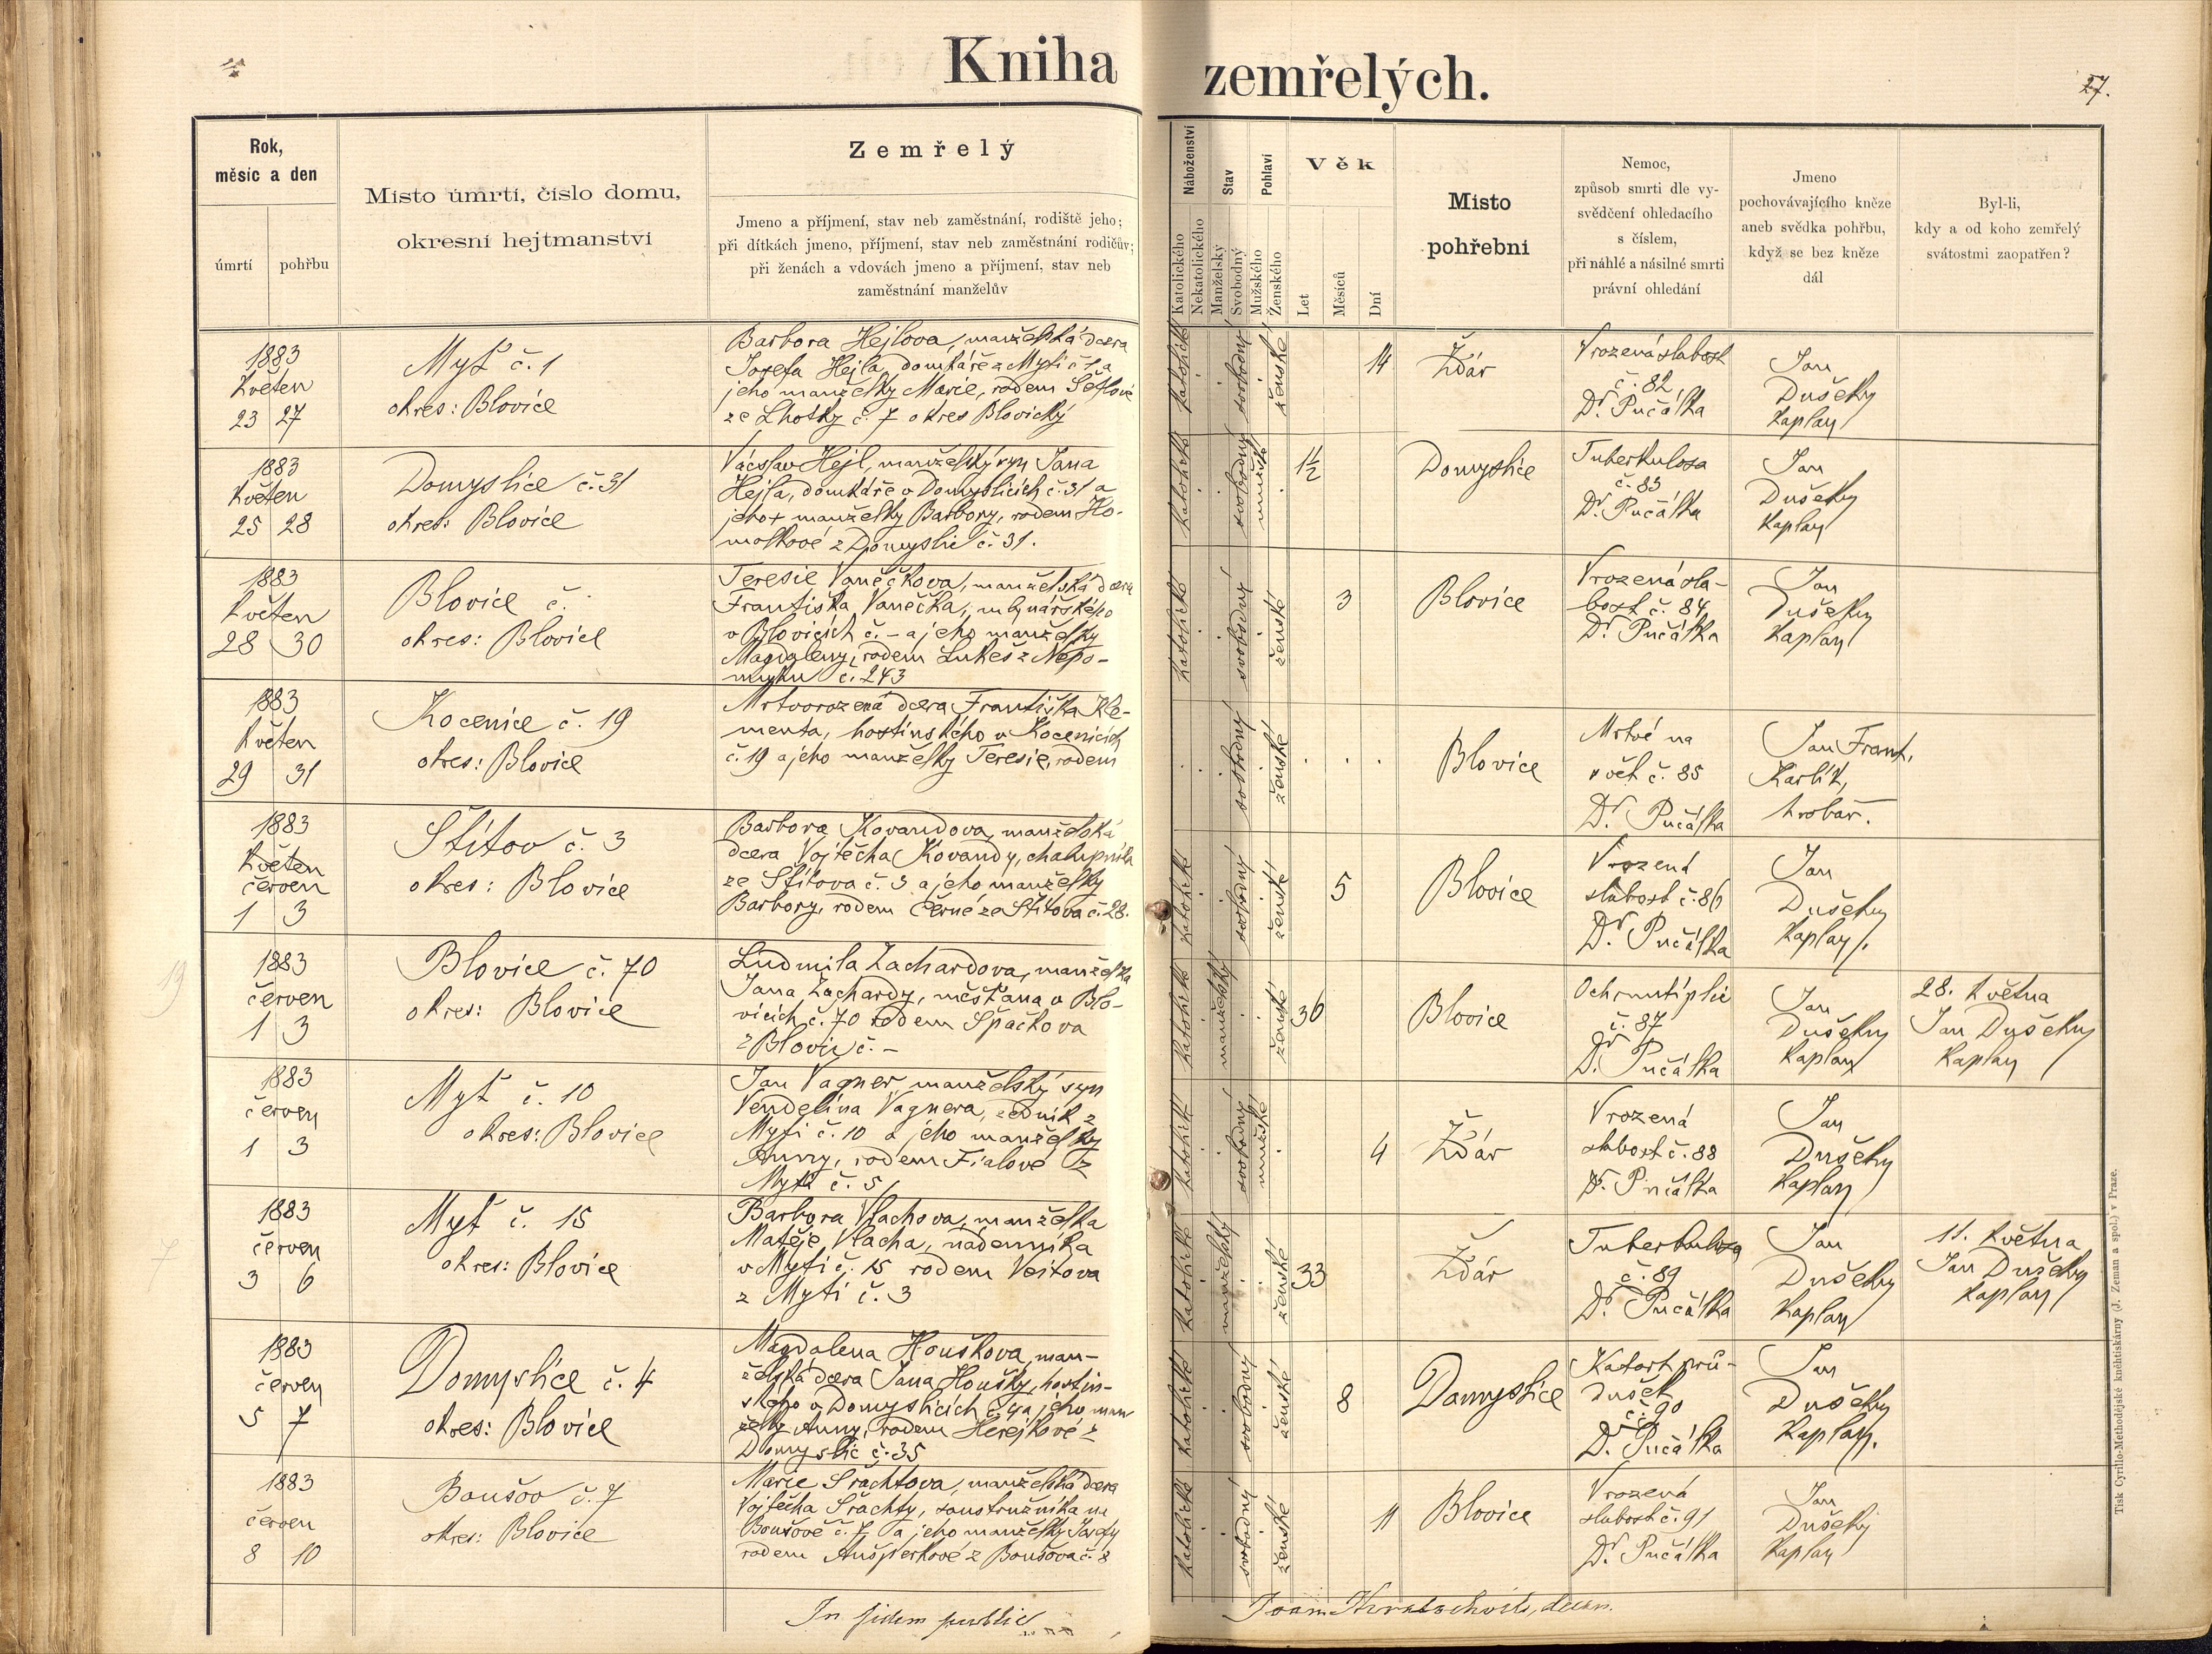 Kniha zemřelých.
27.
Rok,
měsíc a den
úmrtí
pohřbu
Místo úmrtí, číslo domu,
okresní hejtmanství
Zemřelý
Jmeno a příjmení, stav neb zaměstnání, rodiště jeho;
při dítkách jmeno, příjmení, stav neb zaměstnání rodičův;
při ženách a vdovách jmeno a příjmení, stav neb
zaměstnání manželův
Náboženství
Katolického
Nekatolického
Stav
Manželský
Svobodný
Pohlaví
Mužského
Ženského
Věk
Let
Měsíců
Dní
Místo
pohřební
Nemoc,
způsob smrti dle vy-
svědčení ohledacího
s číslem,
při náhlé a násilné smrti
právní ohledání
Jmeno
pochovávajícího kněze
aneb svědka pohřbu,
když se bez kněze
dál
Byl-li,
kdy a od koho zemřelý
svátostmi zaopatřen?
1883
Květen
23 27
Myť č. 1
okres: Blovice
Barbora Hejlova, manželská dcera
Josefa Hejla, domkáře z Mýti č. 1 a
jeho manželky Marie, rodem
ze Lhotky č. 7 okres Blovický
katolické
svobodný
ženské
14
Ždár
Vrozená slabost
č. 82
Dr. Pučálka
Jan
Dušeky
Kaplan
1883
Květen
25 28
Domyslice č. 31
okres: Blovice
Václav Hejl, manželský syn Jana
Hejla, domkáře v Domyslicích č. 31 a
jeho + manželky Barbory, rodem Ho-
molkové z Domyslic č. 31.
katolické
svobodný
mužské
1½
Domyslice
Tuberkulosa
č. 83
Dr. Pučálka
Jan
Dušeky
Kaplan
1883
Květen
28 30
Blovice č.
okres: Blovice
Teresie Vaněčkova, manželská dcera
Františka Vaněčka, mlynářského
v Blovicích č. – a jeho manželky
Magdaleny, rodem Lukeš z Nepo-
muku č. 243
katolické
svobodný
ženské
3
Blovice
Vrozená sla-
bost č. 84
Dr. Pučálka
Jan
Dušeky
Kaplan
1883
Květen
29 31
Kocenice č. 19
okres: Blovice
Mrtvorozená dcera Františka Kle-
menta, hostinského v Kocenicích
č. 19 a jeho manželky Teresie, rodem
svobodný
ženské
Blovice
Mrtvé na
svět č. 85
Dr. Pučálka
Jan Frant.
Karlík,
hrobař.
1883
Květen
červen
1 3
Štítov č. 3
okres: Blovice
Barbora Kovandova, manželská
dcera Vojtěcha Kovandy, chalupníka
ze Štítova č. 3 a jeho manželky
Barbory, rodem Černé ze Štítova č. 28.
katolické
svobodný
ženské
5
Blovice
Vrozená
slabost č. 86
Dr. Pučálka
Jan
Dušeky
Kaplan.
1883
červen
1 3
Blovice č. 70
okres: Blovice
Ludmila Zachardova, manželka
Jana Zachardy, měšťana v Blo-
vicích č. 70 rodem Špačkova
z Blovic č. –
katolické
manželský
ženské
36
Blovice
Ochrnutí plic
č. 87
Dr. Pučálka
Jan
Dušeky
Kaplan
28. Května
Jan Dušeky
Kaplan
1883
červen
1 3
Myť č. 10
okres: Blovice
Jan Vagner, manželský syn
Vendelína Vagnera, zedník z
Mýti č. 10 a jeho manželky
Anny, rodem Fialové z
Mýti č. 5
katolické
svobodný
mužské
4
Ždár
Vrozená
slabost č. 88
Dr. Pučálka
Jan
Dušeky
Kaplan
1883
červen
3 6
Myť č. 15
okres: Blovice
Barbora Vlachova, manželka
Matěje Vlacha, nádenníka
v Mýti č. 15 rodem Veitova
z Mýti č. 3
katolické
manželský
ženské
33
Ždár
Tuberkulosa
č. 89
Dr. Pučálka
Jan
Dušeky
Kaplan
11. Května
Jan Dušeky
Kaplan
1883
červen
5 7
Domyslice č. 4
okres: Blovice
Magdalena Houškova, man-
želská dcera Jana Houšky, hostin-
ského v Domyslicích č. 4 a jeho man
želky Anny, rodem Herejkové z
Domyslic č. 35
katolické
svobodný
ženské
8
Domyslice
Katarh prů-
dušek
č. 90
Dr. Pučálka
Jan
Dušeky
Kaplan.
1883
červen
8 10
Boušov č. 7
okres: Blovice
Marie Šrachtova, manželská dcera
Vojtěcha Šrachty, soustružníka na
Boušově č. 7 a jeho manželky Josefy
rodem Aušperkové z Boušova č. 8
katolické
svobodný
ženské
11
Blovice
Vrozená
slabost č. 91
Dr. Pučálka
Jan
Dušeky
Kaplan
In fidem public
Joan. decan.
Tisk Cyrillo-Methodějské knihtiskárny (J. Zeman a spol.) v Praze.